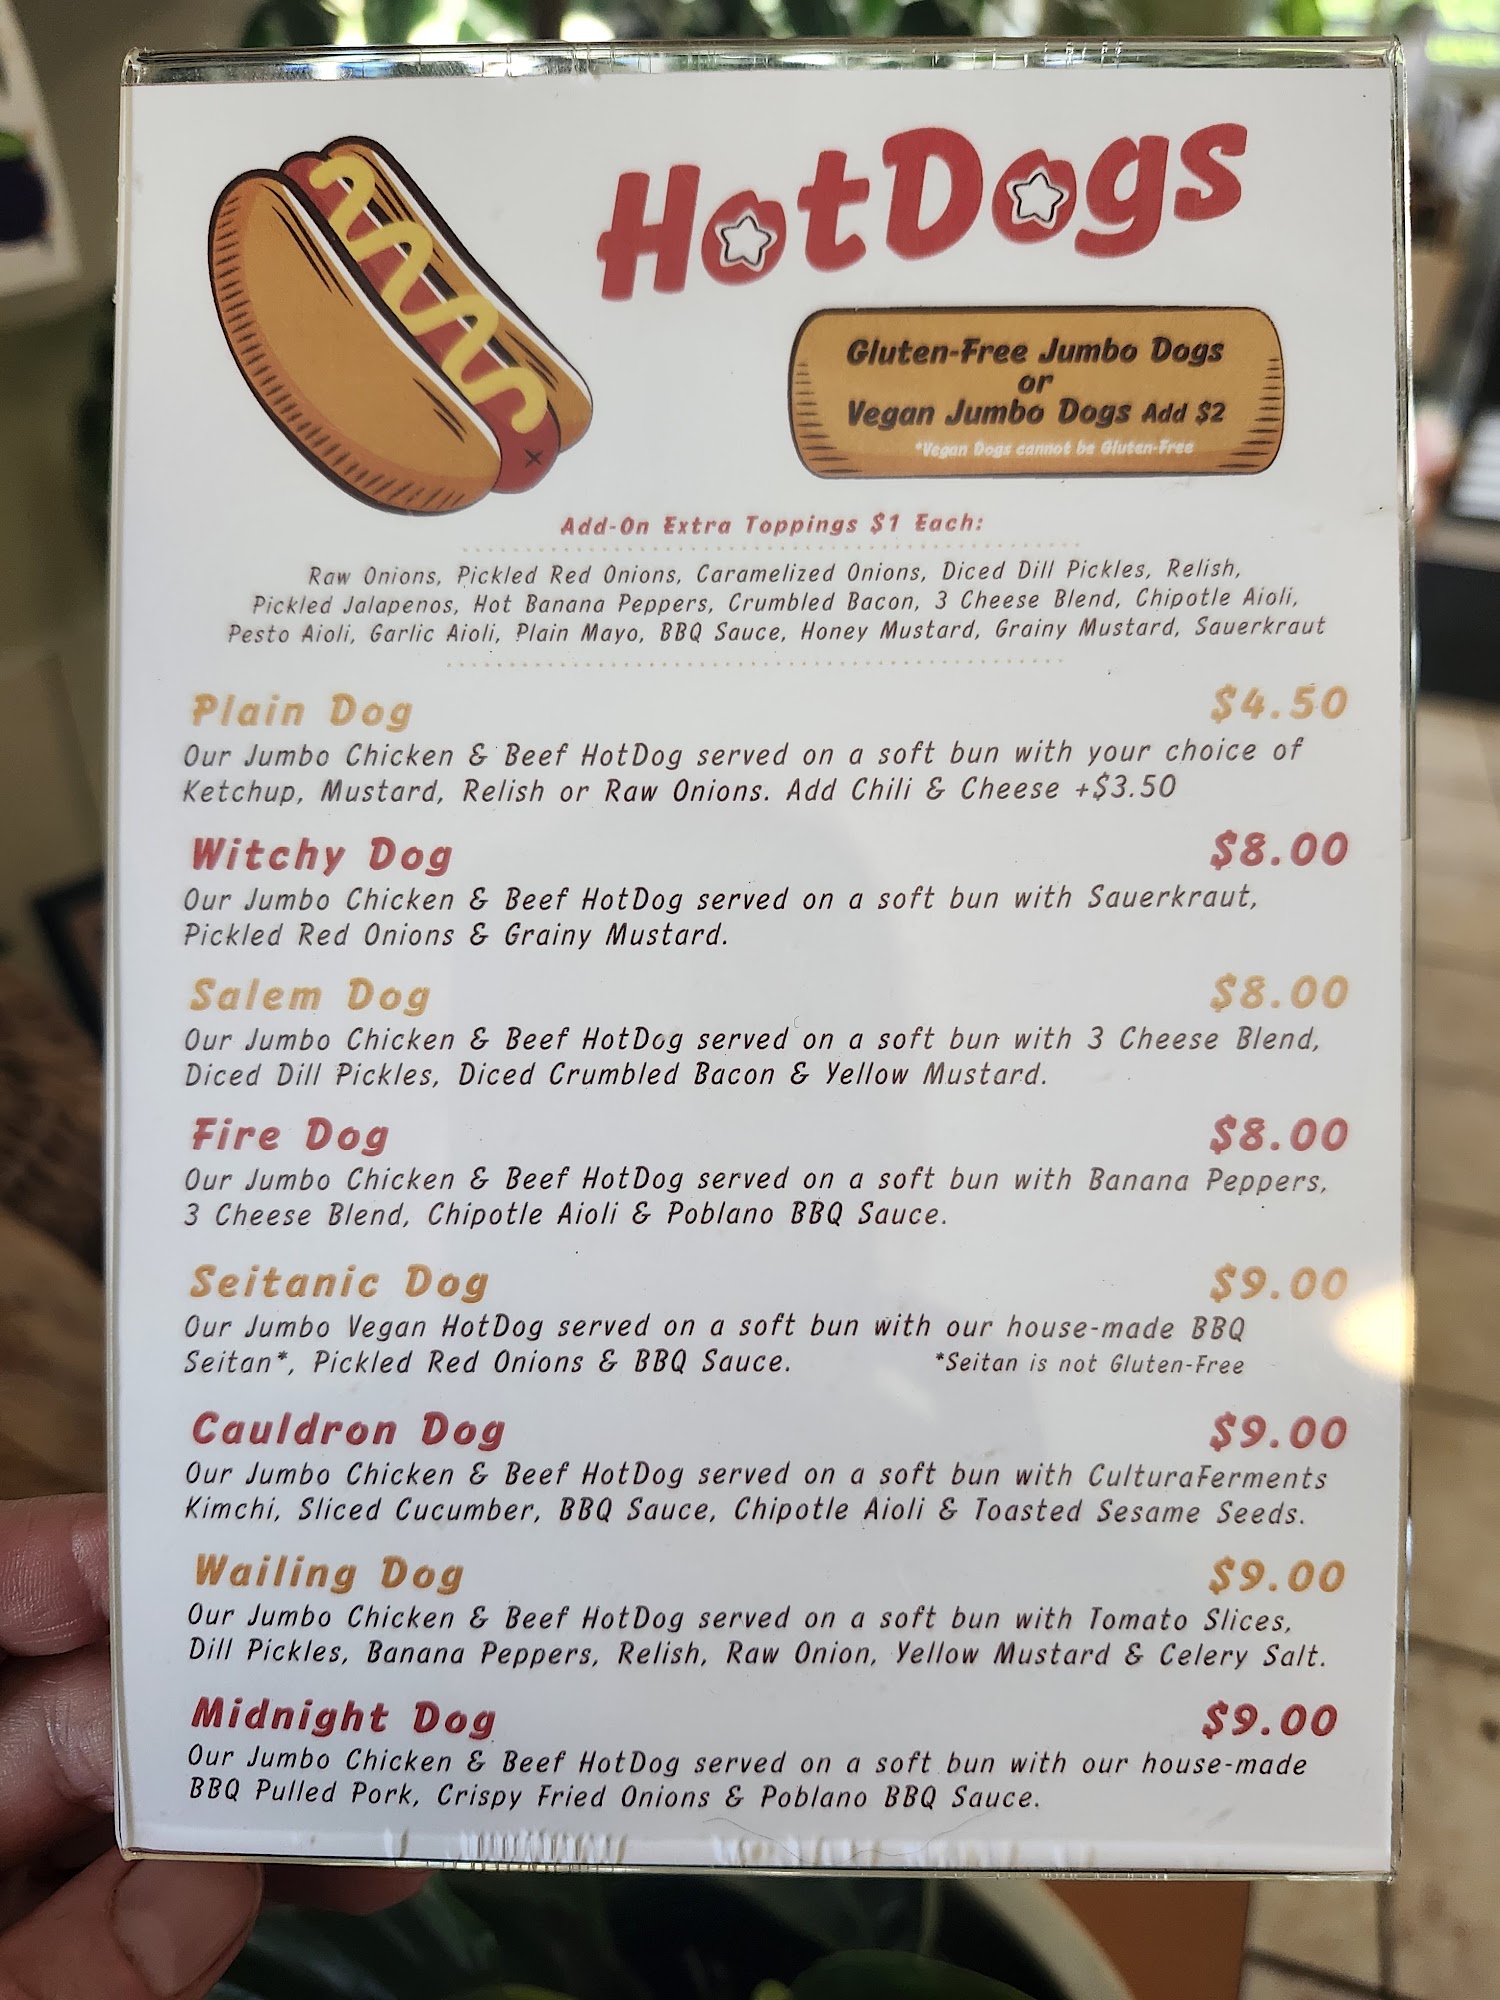 HotDogs
Gluten-Free Jumbo Dogs
or
Vegan Jumbo Dogs Add $2
*Vegan Dogs cannot be Gluten-Free
Add-On Extra Toppings $1 Each:
Raw Onions, Pickled Red Onions, Caramelized Onions, Diced Dill Pickles, Relish,
Pickled Jalapenos, Hot Banana Peppers, Crumbled Bacon, 3 Cheese Blend, Chipotle Aioli,
Pesto Aioli, Garlic Aioli, Plain Mayo, BBQ Sauce, Honey Mustard, Grainy Mustard, Sauerkraut
Plain Dog $4.50
Our Jumbo Chicken & Beef HotDog served on a soft bun with your choice of
Ketchup, Mustard, Relish or Raw Onions. Add Chili & Cheese +$3.50
Witchy Dog $8.00
Our Jumbo Chicken & Beef HotDog served on a soft bun with Sauerkraut,
Pickled Red Onions & Grainy Mustard.
Salem Dog $8.00
Our Jumbo Chicken & Beef HotDog served on a soft bun with 3 Cheese Blend,
Diced Dill Pickles, Diced Crumbled Bacon & Yellow Mustard.
Fire Dog $8.00
Our Jumbo Chicken & Beef HotDog served on a soft bun with Banana Peppers,
3 Cheese Blend, Chipotle Aioli & Poblano BBQ Sauce.
Seitanic Dog $9.00
Our Jumbo Vegan HotDog served on a soft bun with our house-made BBQ
Seitan*, Pickled Red Onions & BBQ Sauce. *Seitan is not Gluten-Free
Cauldron Dog $9.00
Our Jumbo Chicken & Beef HotDog served on a soft bun with CulturaFerments
Kimchi, Sliced Cucumber, BBQ Sauce, Chipotle Aioli & Toasted Sesame Seeds.
Wailing Dog $9.00
Our Jumbo Chicken & Beef HotDog served on a soft bun with Tomato Slices,
Dill Pickles, Banana Peppers, Relish, Raw Onion, Yellow Mustard & Celery Salt.
Midnight Dog $9.00
Our Jumbo Chicken & Beef HotDog served on a soft bun with our house-made
BBQ Pulled Pork, Crispy Fried Onions & Poblano BBQ Sauce.